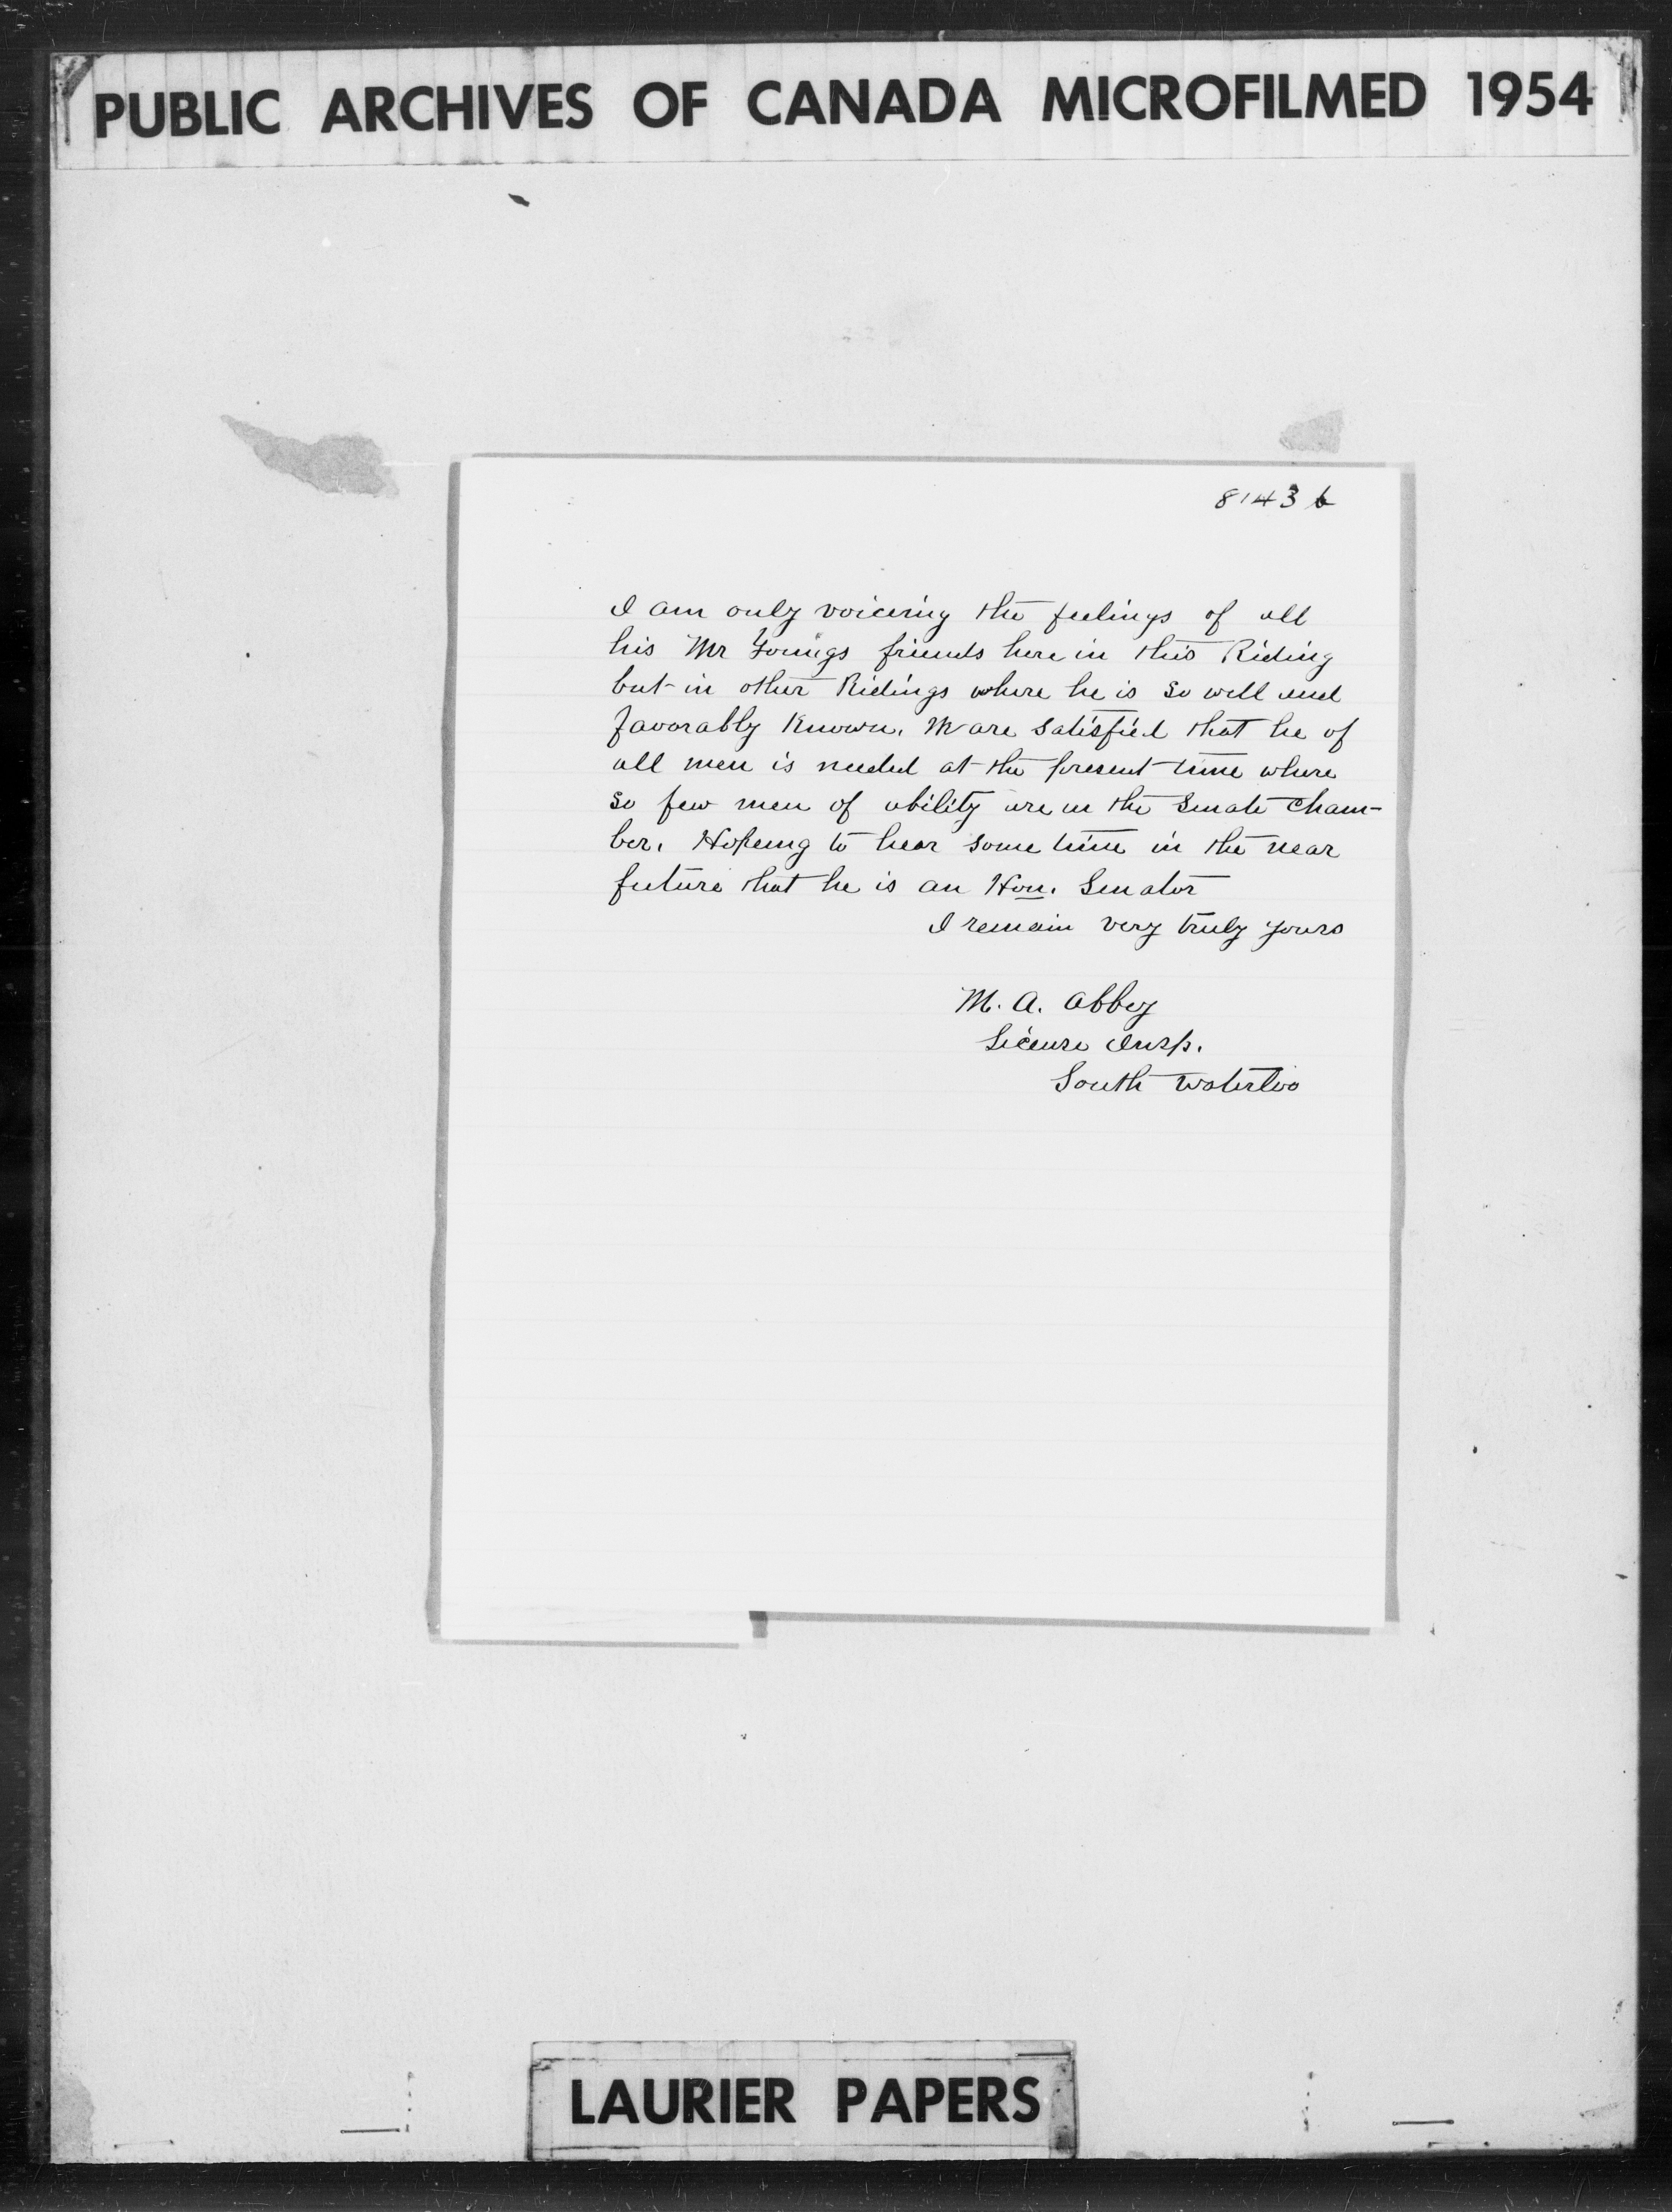 PUBLIC ARCHIVES OF CANADA MICROFILMED 1954
81436
I am only voiceing the feelings of all
his Mr Youngs friends here in this Riding
but in other Ridings where he is so well and
favorably Known. We are satisfied that he of
all men is needed at the present time where
so few men of ability are in the Senate Cham-
ber. Hopeing to hear some time in the near
future that he is an Hon. Senator
I remain very truly yours
M. A. Abbey
License Insp.
South Waterloo
LAURIER PAPERS